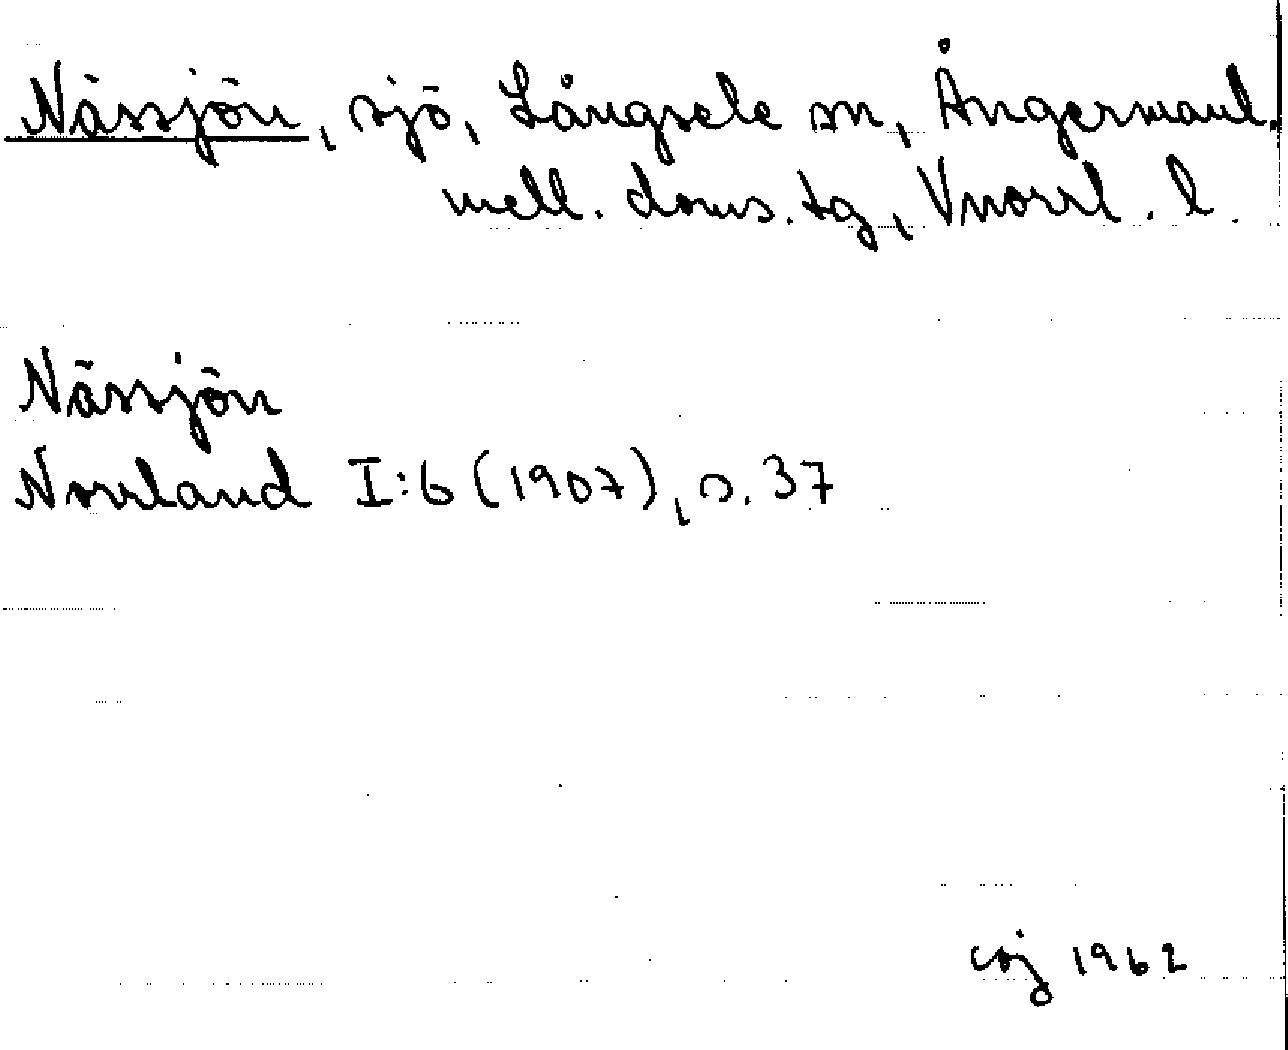 Nässjön, sjö, Långsele sn, Ångermanl.
mell. doms. tg, Vnorrl. l.
Nässjön
Norrland I:6 (1907), s. 37
1962